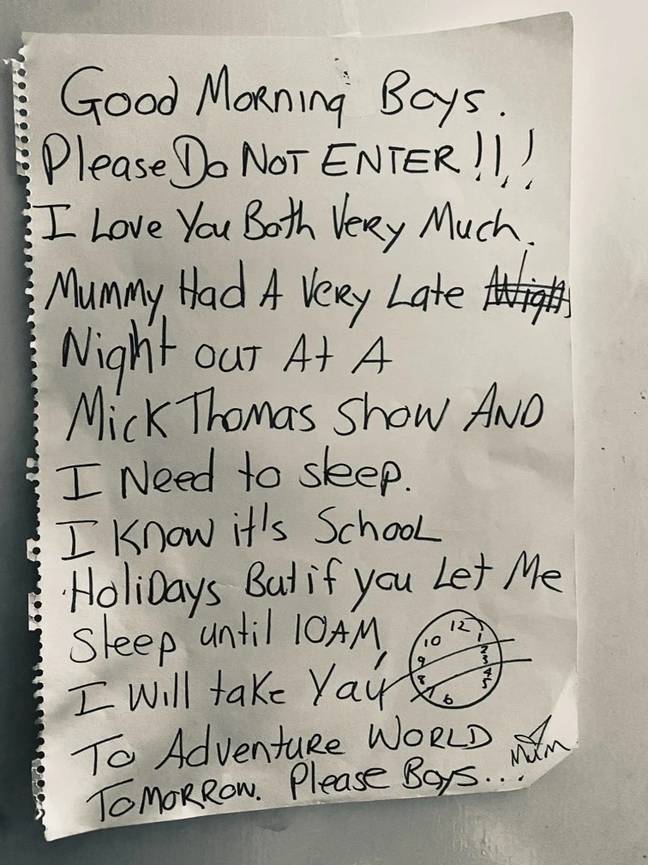 Good Morning Boys.
Please Do NOT ENTER!!!
I Love You Both Very Much.
Mummy Had A Very Late Nigh
Night out At A
Mick Thomas Show AND
I Need to sleep.
I Know it's School
Holidays But if you Let Me
Sleep until 10AM,
12 1 2 3 4 5 6 7 8 9 10
I Will take You
To Adventure WORLD
TOMORROW. Please Boys...
Mum